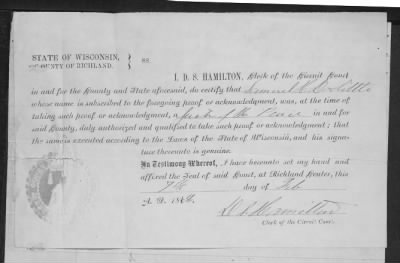 STATE OF WISCONSIN,
COUNTY OF RICHLAND.
SS.
I. D. S. HAMILTON, Clerk of the Circuit Court
in and for the County and State aforesaid, do certify that Samuel
whose name is subscribed to the foregoing proof or acknowledgment, was, at the time of
taking such proof or acknowledgment, a Justice of the Peace in and for
said County, duly authorized and qualified to take such proof or acknowledgment; that
the same is executed according to the Laws of the State of Wisconsin, and his signa-
ture thereunto is genuine.
In Testimony Whereof, I have hereunto set my hand and
affixed the Seal of said Court, at Richland Center, this
day of Feb
A. D. 186
D. S. Hamilton
Clerk of the Circuit Court.